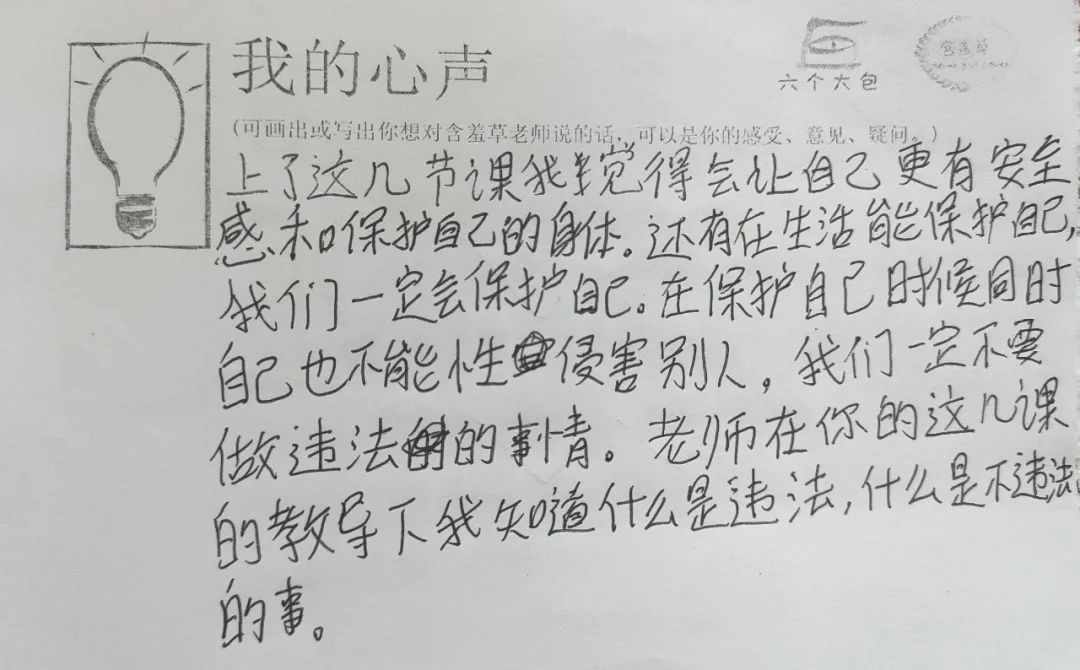 我的心声
六个大包
含羞草
(可画出或写出你想对含羞草老师说的话，可以是你的感受、意见、疑问。)
上了这几节课我觉得会让自己更有安全
感和保护自己的身体。还有在生活能保护自己,
我们一定会保护自己。在保护自己时候同时
自己也不能性侵害别人，我们一定不要
做违法的事情。老师在你的这几课
的教导下我知道什么是违法,什么是不违法
的事。